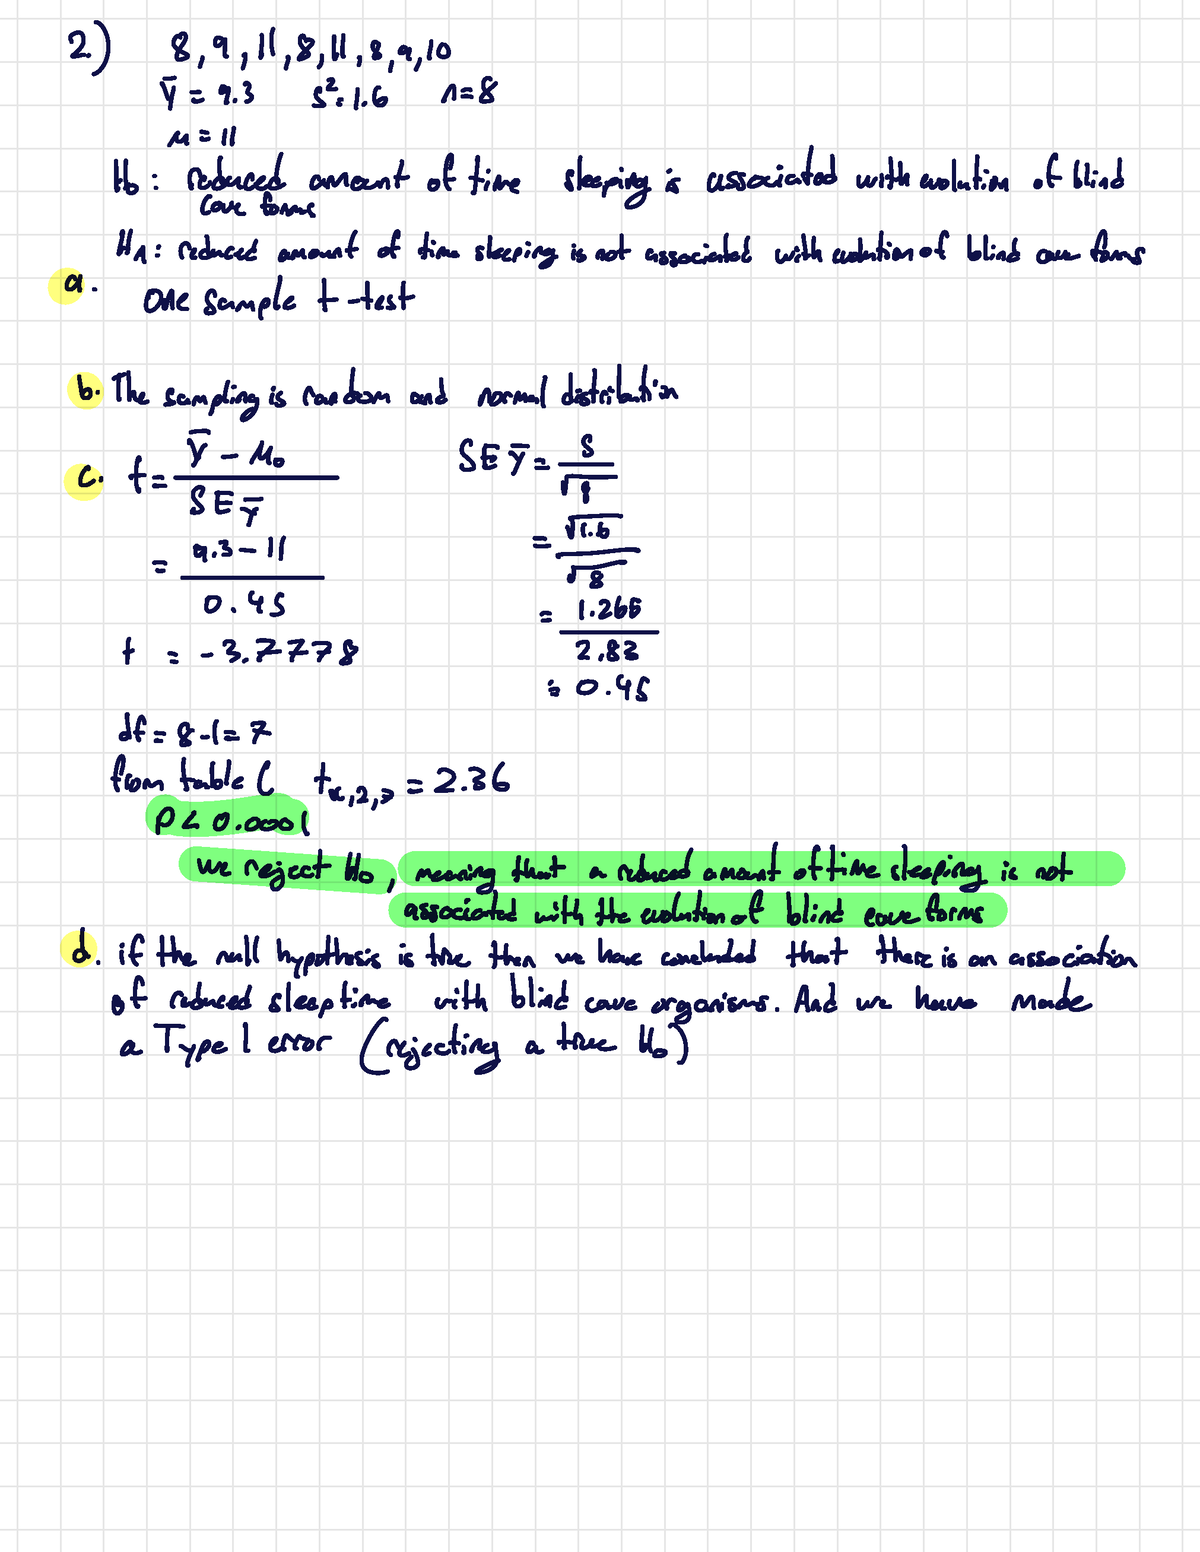 2) 8, 9, 11, 8, 11, 8, 9, 10
Ȳ = 9.3 s² = 1.6 n = 8
μ = 11
H₀ : reduced amount of time sleeping is associated with evolution of blind
cave forms
H_A : reduced amount of time sleeping is not associated with evolution of blind cave forms
a. One sample t-test
b. The sampling is random and normal distribution
c. t = (Ȳ - μ₀) / SE_Ȳ
= (9.3 - 11) / 0.45
t = -3.7778
SE Ȳ = s / √8
= √1.6 / √8
= 1.265 / 2.83
= 0.45
df = 8-1 = 7
from table C t_α,2,7 = 2.36
P < 0.0001
we reject H₀, meaning that a reduced amount of time sleeping is not
associated with the evolution of blind cave forms
d. if the null hypothesis is true then we have concluded that there is an association
of reduced sleep time with blind cave organisms. And we have made
a Type 1 error (rejecting a true H₀)